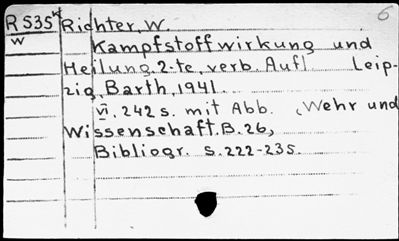 6
R 535 Richter, W.
W Kampfstoffwirkung und
Heilung. 2-te, verb. Aufl. Leip-
zig, Barth, 1941.
VI, 242 s. mit Abb. (Wehr und
Wissenschaft. B. 26,
Bibliogr. s. 222-235.